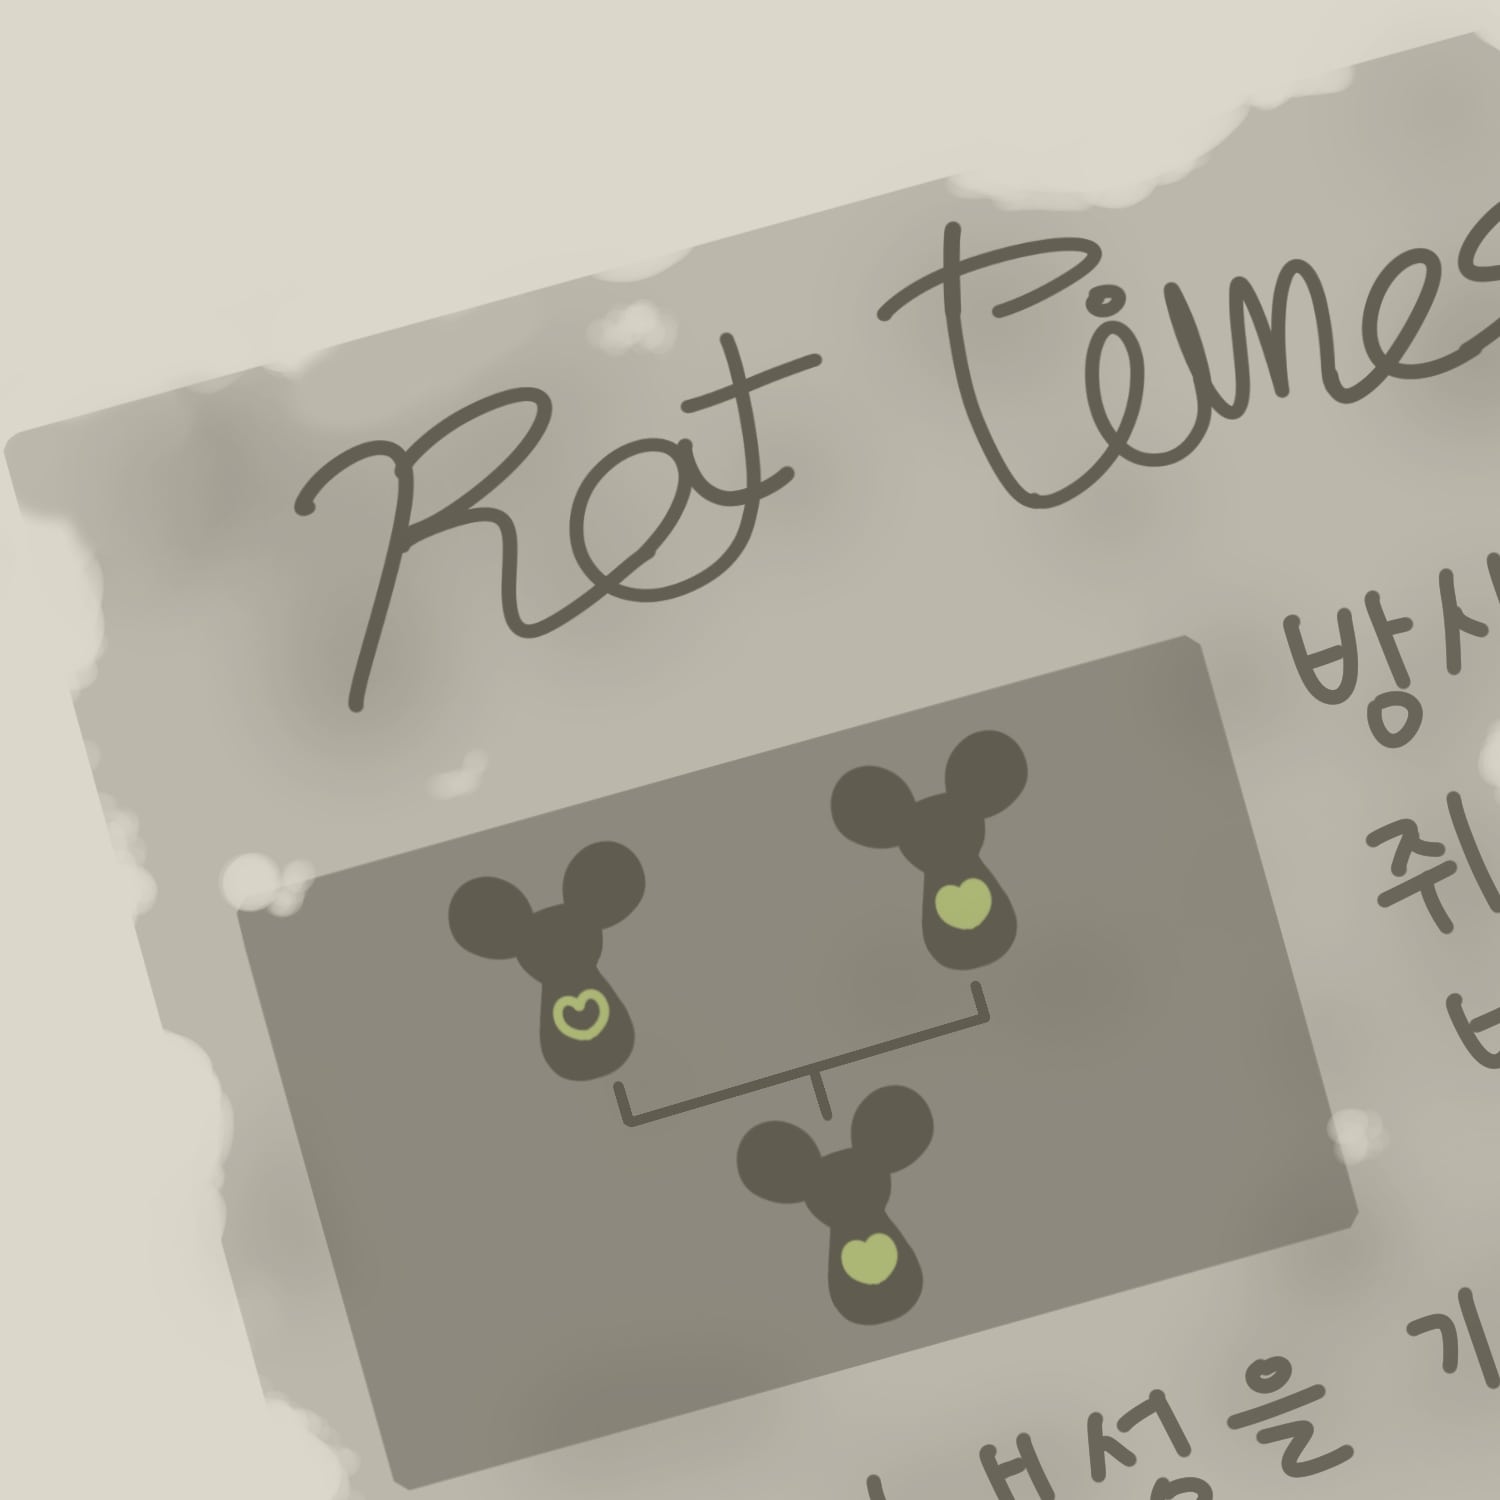 Rat times
방사
쥐
기
내성을